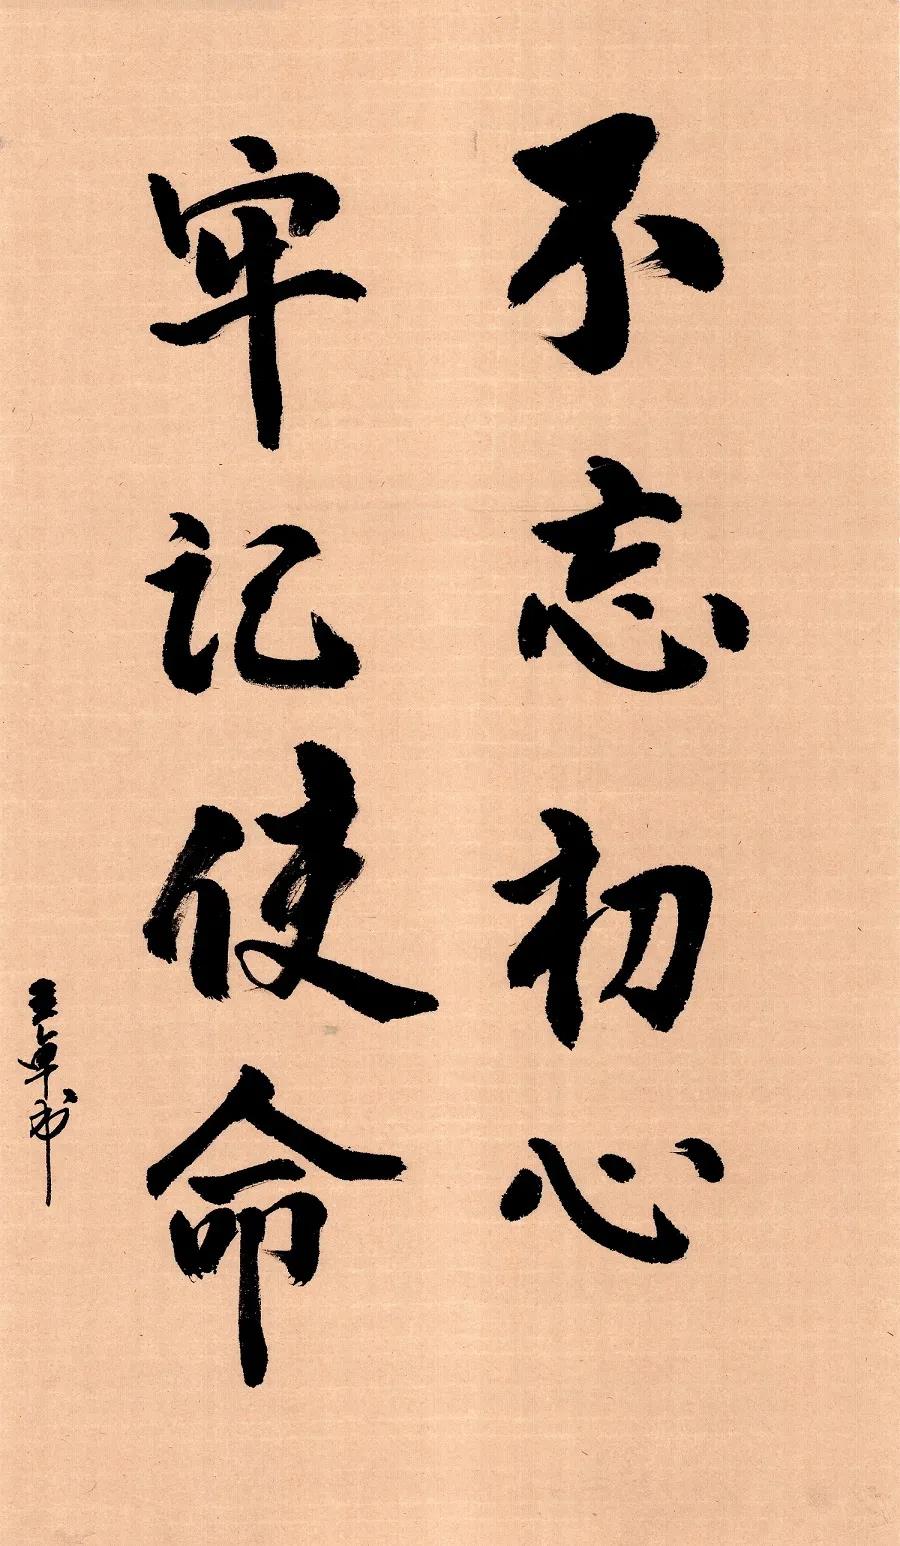 不忘初心
牢记使命
王卓书